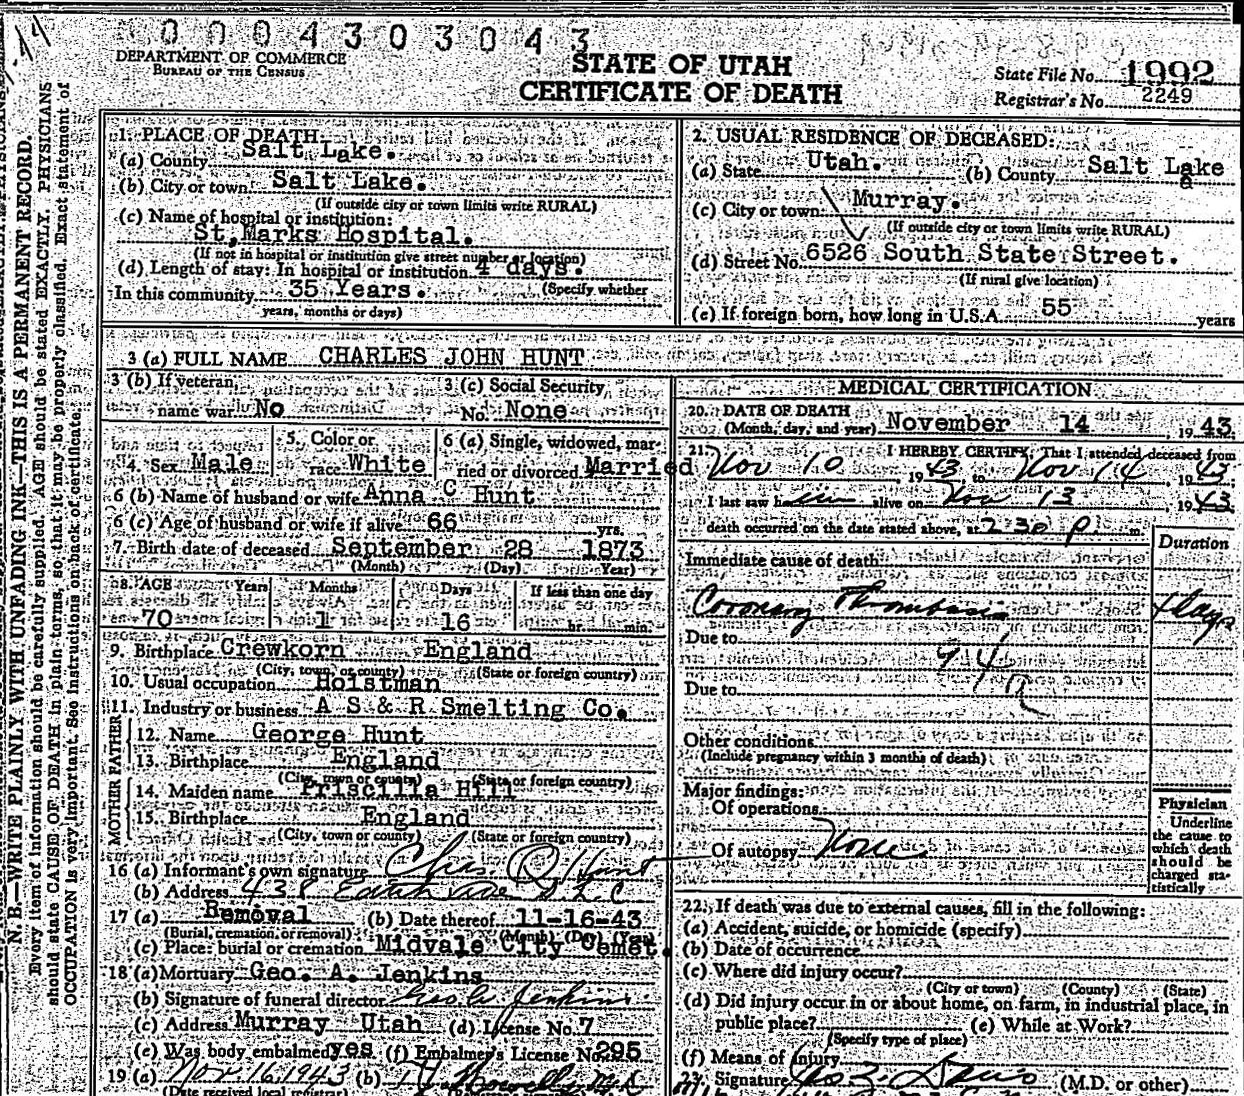 0004303043
DEPARTMENT OF COMMERCE
BUREAU OF THE CENSUS
STATE OF UTAH
CERTIFICATE OF DEATH
State File No. 1992
Registrar's No. 2249
N. B.—WRITE PLAINLY WITH UNFADING INK—THIS IS A PERMANENT RECORD.
Every item of information should be carefully supplied. AGE should be stated EXACTLY. PHYSICIANS
should state CAUSE OF DEATH in plain terms, so that it may be properly classified. Exact statement of
OCCUPATION is very important. See Instructions on back of certificate.
1. PLACE OF DEATH:
(a) County Salt Lake.
(b) City or town Salt Lake.
(If outside city or town limits write RURAL)
(c) Name of hospital or institution:
St, Marks Hospital.
(If not in hospital or institution give street number or location)
(d) Length of stay: In hospital or institution 4 days.
(Specify whether
In this community 35 Years.
years, months or days)
2. USUAL RESIDENCE OF DECEASED:
(a) State Utah. (b) County Salt Lake
(c) City or town Murray.
(If outside city or town limits write RURAL)
(d) Street No. 6526 South State Street.
(If rural give location)
(e) If foreign born, how long in U.S.A. 55 years
3 (a) FULL NAME CHARLES JOHN HUNT
3 (b) If veteran, name war No
3 (c) Social Security No. None
4. Sex Male
5. Color or race White
6 (a) Single, widowed, married or divorced Married
6 (b) Name of husband or wife Anna C Hunt
6 (c) Age of husband or wife if alive 66 yrs.
7. Birth date of deceased September 28 1873
(Month) (Day) Year)
8. AGE Years Months Days If less than one day
70 1 16 hr. min.
9. Birthplace Crewkorn England
(City, town, or county) (State or foreign country)
10. Usual occupation Hoistman
11. Industry or business A S & R Smelting Co.
FATHER
12. Name George Hunt
13. Birthplace England
(City, town or county) (State or foreign country)
MOTHER
14. Maiden name Priscilla Hill
15. Birthplace England
(City, town or county) (State or foreign country)
16 (a) Informant's own signature Chas. Hunt
(b) Address 438 S.L.C
17 (a) Removal (b) Date thereof 11-16-43
(Burial, cremation, or removal) (Month) (Day) (Year)
(c) Place: burial or cremation Midvale City Cemet.
18 (a) Mortuary Geo. A. Jenkins
(b) Signature of funeral director Geo. A. Jenkins
(c) Address Murray Utah (d) License No. 7
(e) Was body embalmed yes (f) Embalmer's License No. 295
19 (a) Nov. 16, 1943 (b)
(Date received local registrar)
MEDICAL CERTIFICATION
20. DATE OF DEATH
(Month, day, and year) November 14, 1943.
21. I HEREBY CERTIFY, That I attended deceased from
Nov 10, 1943 to Nov 14, 1943
I last saw him alive on Nov 13, 1943
death occurred on the date stated above, at 2:30 P. m.
Duration
Immediate cause of death
Coronary Thrombosis days
Due to
94
Due to
Other conditions
(Include pregnancy within 3 months of death)
Major findings:
Of operations
Of autopsy None
Physician
Underline
the cause to
which death
should be
charged sta-
tistically
22. If death was due to external causes, fill in the following:
(a) Accident, suicide, or homicide (specify)
(b) Date of occurrence
(c) Where did injury occur?
(City or town) (County) (State)
(d) Did injury occur in or about home, on farm, in industrial place, in
public place? (e) While at Work?
(Specify type of place)
(f) Means of Injury
23. Signature (M.D. or other)